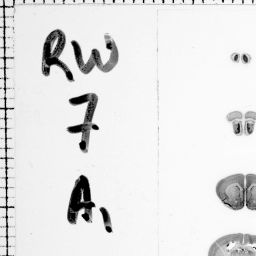 RW
7
A1